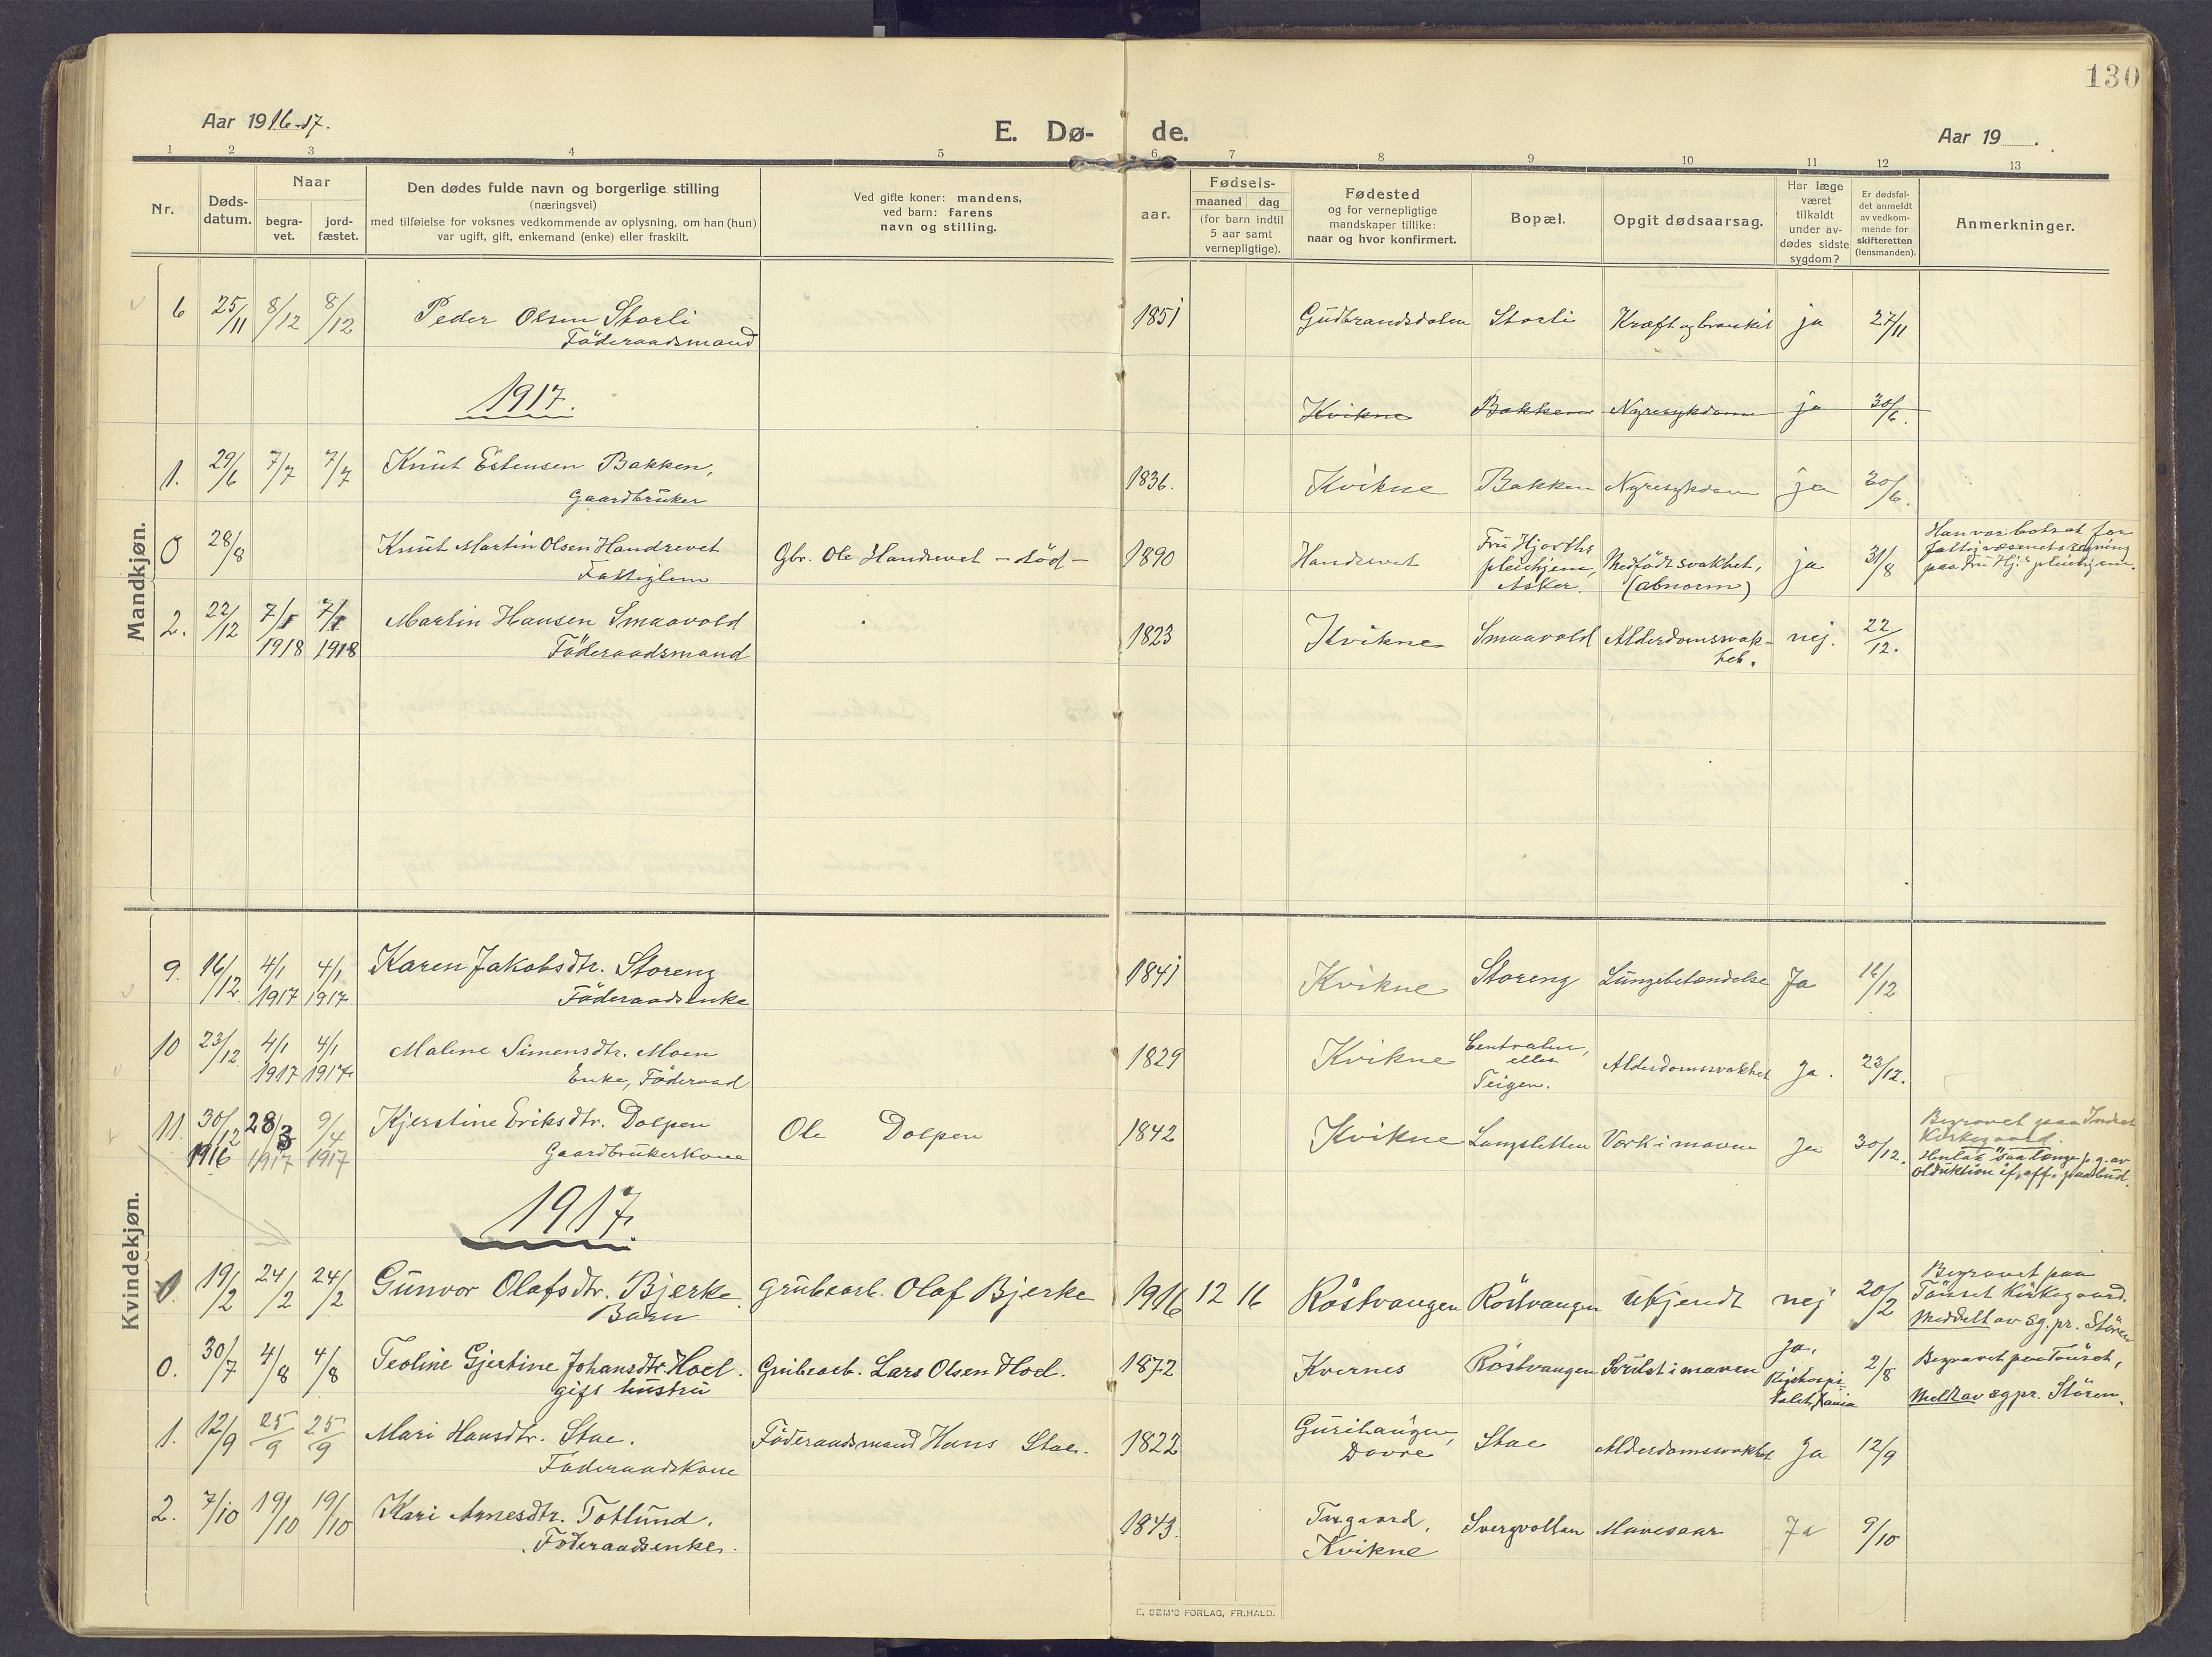 130
Aar 1916-17.
E. Dø- de.
Aar 19 .
1 2 3 4 5 6 7 8 9 10 11 12 13
Nr.
Døds-
datum.
Naar
begra-
vet.
jord-
fæstet.
Den dødes fulde navn og borgerlige stilling
(næringsvei)
med tilføielse for voksnes vedkommende av oplysning, om han (hun)
var ugift, gift, enkemand (enke) eller fraskilt.
Ved gifte koner: mandens,
ved barn: farens
navn og stilling.
aar.
Fødsels-
maaned dag
(for barn indtil
5 aar samt
vernepligtige).
Fødested
og for vernepligtige
mandskaper tillike:
naar og hvor konfirmert.
Bopæl.
Opgit dødsaarsag.
Har læge
været
tilkaldt
under av-
dødes sidste
sygdom?
Er dødsfal-
det anmeldt
av vedkom-
mende for
skifteretten
(lensmanden).
Anmerkninger.
Mandkjøn.
6 25/11 8/12 8/12 Peder Olsen Storli 1851 Gudbrandsdalen Storli Kræft og bronkit ja 27/11
Föderaadsmand
1917.
Kvikne Bakken Nyresykdom ja 30/6.
1. 29/6 7/7 7/7 Knut Estensen Bakken, 1836. Kvikne Bakken Nyresykdom ja 30/6.
Gaardbruker
0 28/8 Knut Martin Olsen Handrevet Gbr. Ole Handrevet - död - 1890 Handrevet Fru Hjorths pleiehjem, Asker. Medfödt svakhet, (abnorm) ja 31/8
Fattiglem
Han var botsat for
fattigvæsenets regning
paa Fru Hj.s pleiehjem.
2. 22/12 7/1 1918 7/1 1918 Martin Hansen Smaavold 1823 Kvikne Smaavold Alderdomssvak- nej. 22/12.
Föderaadsmand het.
Kvindekjøn.
9. 16/12 4/1 1917 4/1 1917 Karen Jakobsdtr. Storeng 1841 Kvikne Storeng Lungebetændelse Ja 16/12
Föderaadsenke
10 23/12 4/1 1917 4/1 1917 Malene Simensdtr. Moen 1829 Kvikne Centralen, eller Teigen. Alderdomssvakhet Ja. 23/12.
Enke, Föderaad
11. 30/12 1916 28/3 1917 9/4 1917 Kjerstine Eriksdtr. Dolpen Ole Dolpen 1842 Kvikne Langsletten Værk i maven Ja 30/12.
Gaardbrukerkone
Begravet paa Indset
Kirkegaard.
Henlaa saa længe p.g. av
obduktion if. off. paabud.
1917.
0. 19/2 24/2 24/2 Gunvor Olafsdtr. Bjerke Grubearb. Olaf Bjerke 1916 12 16 Röstvangen Röstvangen Ukjendt nej 20/2
Barn
Begravet paa
Tönset Kirkegaard.
Meddelt av sg. pr. Stören
0. 30/7 4/8 4/8 Teoline Gjertine Johansdtr. Hoel. Grubearb. Lars Olsen Hoel. 1872 Kvernes Röstvangen Svulst i maven Ja, Rigshospi- talet, Kania 2/8
gift hustru
Begravet paa Tönset,
Meldt av sgpr. Stören.
1. 12/9 25/9 25/9 Mari Hansdtr. Stae. Föderaadsmand Hans Stae. 1822 Gurihaugen, Dovre Stae Alderdomssvakhet Ja 12/9
Föderaadskone
2. 7/10 19/10 19/10 Kari Arnesdtr. Totlund. 1843. Kvikne Mavesaar Ja 9/10
Föderaadsenke.
E. SEM'S FORLAG, FR.HALD.